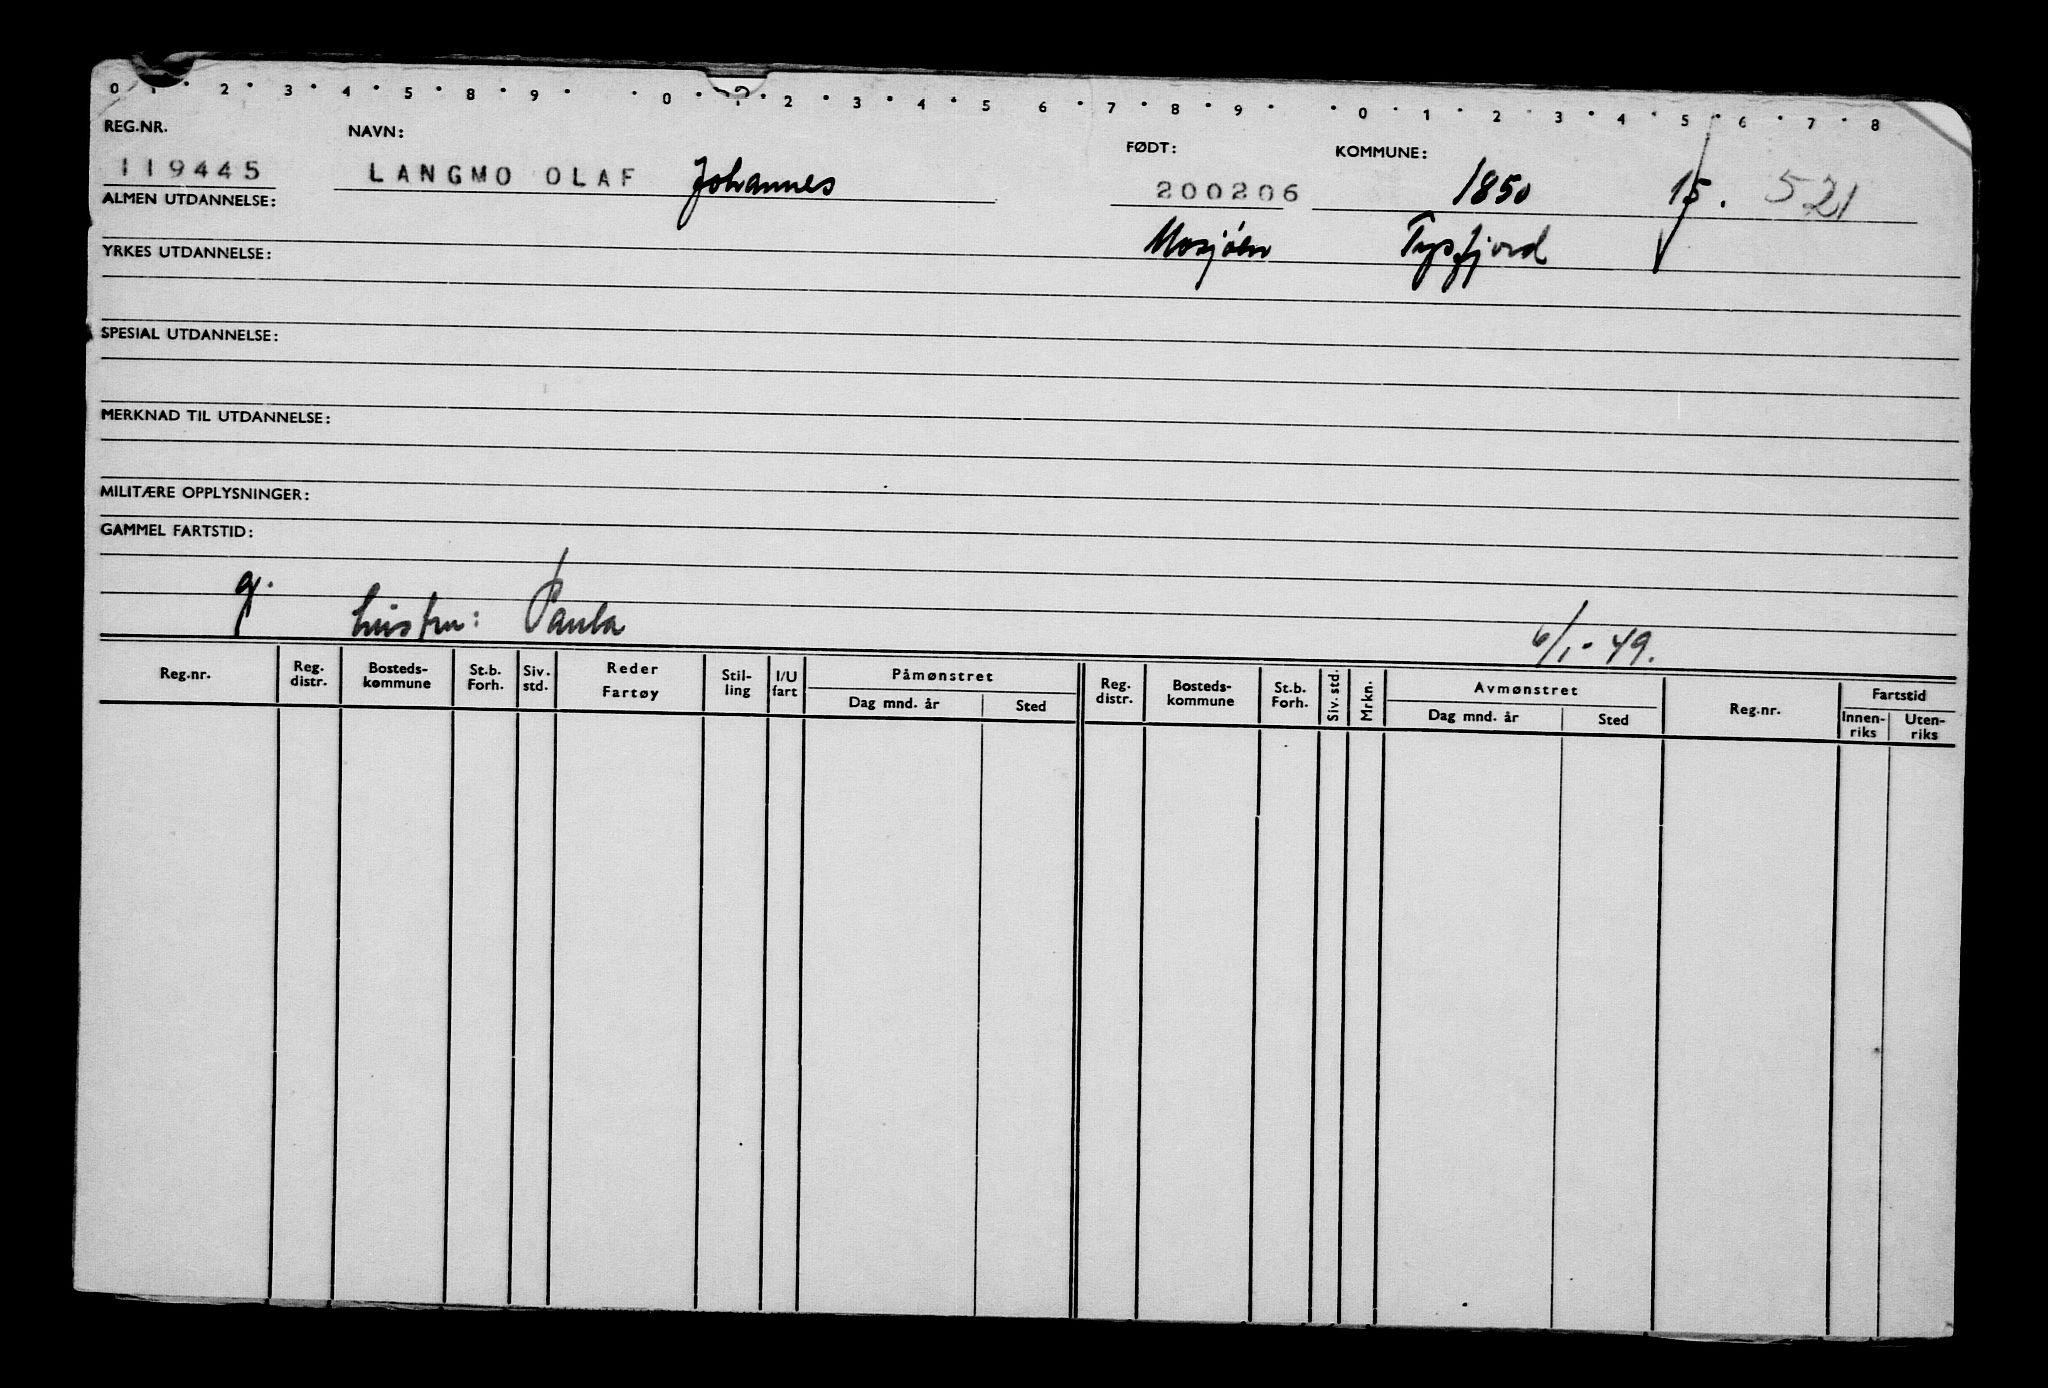 0 1 2 3 4 5 8 9 0 1 2 3 4 5 6 7 8 9 0 1 2 3 4 5 6 7 8
REG.NR. NAVN: FØDT: KOMMUNE:
119445 LANGMO OLAF Johannes 200206 1850 15. 521
ALMEN UTDANNELSE:
Mosjøen Tysfjord
YRKES UTDANNELSE:
SPESIAL UTDANNELSE:
MERKNAD TIL UTDANNELSE:
MILITÆRE OPPLYSNINGER:
GAMMEL FARTSTID:
g. hustru: Paula 6/1-49.
Reg.nr. Reg. distr. Bosteds-kommune St.b. Forh. Siv. std. Reder Fartøy Stil-ling I/U fart Påmønstret Dag mnd. år Sted Reg. distr. Bosteds-kommune St.b. Forh. Siv. std. Mrkn. Avmønstret Dag mnd. år Sted Reg.nr. Fartstid Innen-riks Uten-riks